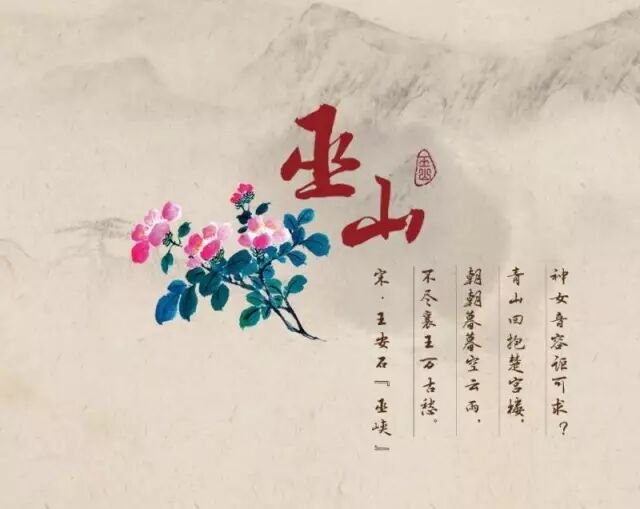 巫山
神女音容讵可求?
青山回抱楚宫楼,
朝朝暮暮空云雨,
不尽襄王万古愁。
宋·王安石『巫峡』